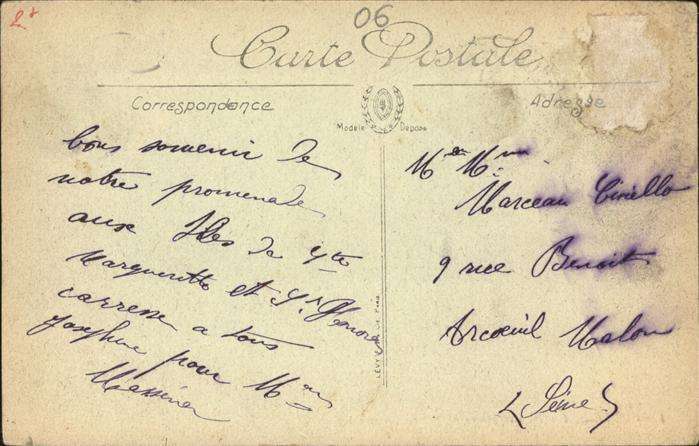 2f
06
Carte Postale
Correspondance
Adresse
Modèle Déposé
bons souvenir de
notre promenade
aux Iles de Ste
Marguerite et St Honorat
caresse a tous
Josephine pour Mman
Massina
Mr Mme
Marceau Ciriello
9 rue Benoit
Arcoeuil Malou
(Seine)